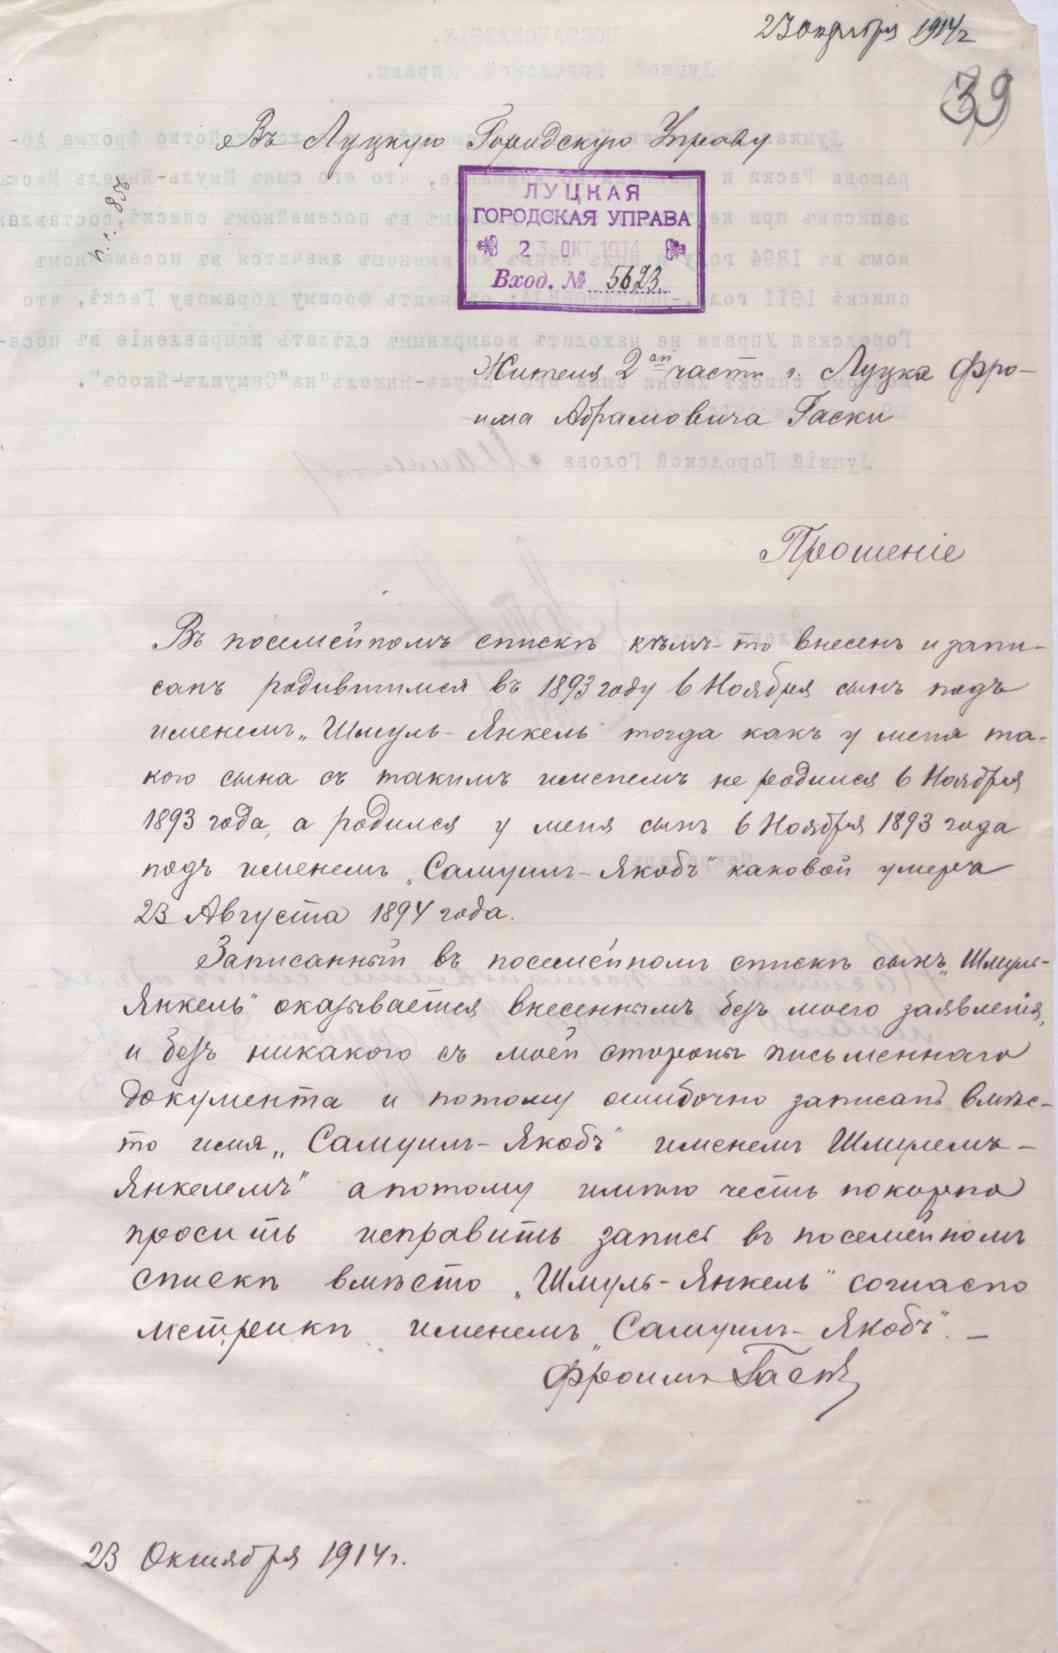 23 октября 1914 г
39
Въ Луцкую Городскую Управу
ЛУЦКАЯ
ГОРОДСКАЯ УПРАВА
23 ОКТ 1914
Вход. № 5623
Жителя 2 ой части г. Луцка Фро-
има Абрамовича Гаски
Прошеніе
Въ посемейномъ спискѣ кѣмъ-то внесенъ и запи-
санъ родившимся въ 1893 году 6 Ноября сынъ подъ
именемъ „Шмуль-Янкель тогда какъ у меня та-
кого сына съ такимъ именемъ не родился 6 Ноября
1893 года, а родился у меня сынъ 6 Ноября 1893 года
подъ именемъ „Самуилъ-Якобъ" каковой умеръ
23 Августа 1894 года.
Записанный въ посемейномъ спискѣ сынъ „Шмуль-
Янкель" оказывается внесеннымъ безъ моего заявленія,
и безъ никакого съ моей стороны письменнаго
документа и потому ошибочно записанъ вмѣс-
то имя „Самуилъ-Якобъ" именемъ Шмулемъ-
Янкелемъ" а потому имѣю честь покорно
просить исправить запись въ посемейномъ
спискѣ вмѣсто „Шмуль-Янкель" согласно
метрики именемъ „Самуилъ-Якобъ". —
Фроимъ Гаскъ
23 Октября 1914 г.